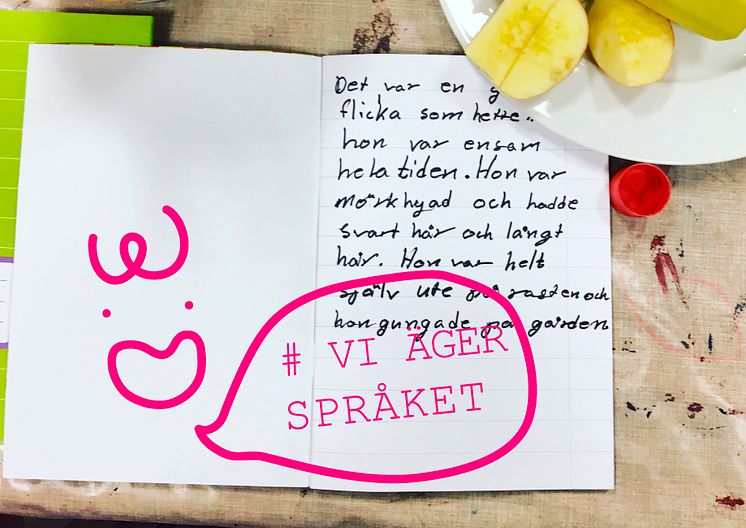 Det var en
flicka som hette..
hon var ensam
hela tiden. Hon var
mörkhyad och hadde
svart hår och långt
hår. Hon var helt
själv ute på rasten och
hon gungade på gården
# VI ÄGER
SPRÅKET